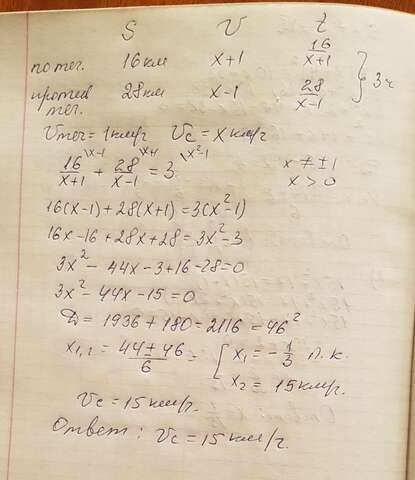 S V t
по теч. 16 км x+1 16/(x+1)
против теч. 28 км x-1 28/(x-1) } 3 ч
Vтеч = 1 км/ч Vc = x км/ч
16/(x+1) \x-1 + 28/(x-1) \x+1 = 3 \x²-1 x ≠ ±1
x > 0
16(x-1) + 28(x+1) = 3(x²-1)
16x - 16 + 28x + 28 = 3x² - 3
3x² - 44x - 3 + 16 - 28 = 0
3x² - 44x - 15 = 0
D = 1936 + 180 = 2116 = 46²
x1,2 = (44 ± 46)/6 = [ x1 = -1/3 п.к.
x2 = 15 км/ч.
Vc = 15 км/ч.
Ответ: Vc = 15 км/ч.